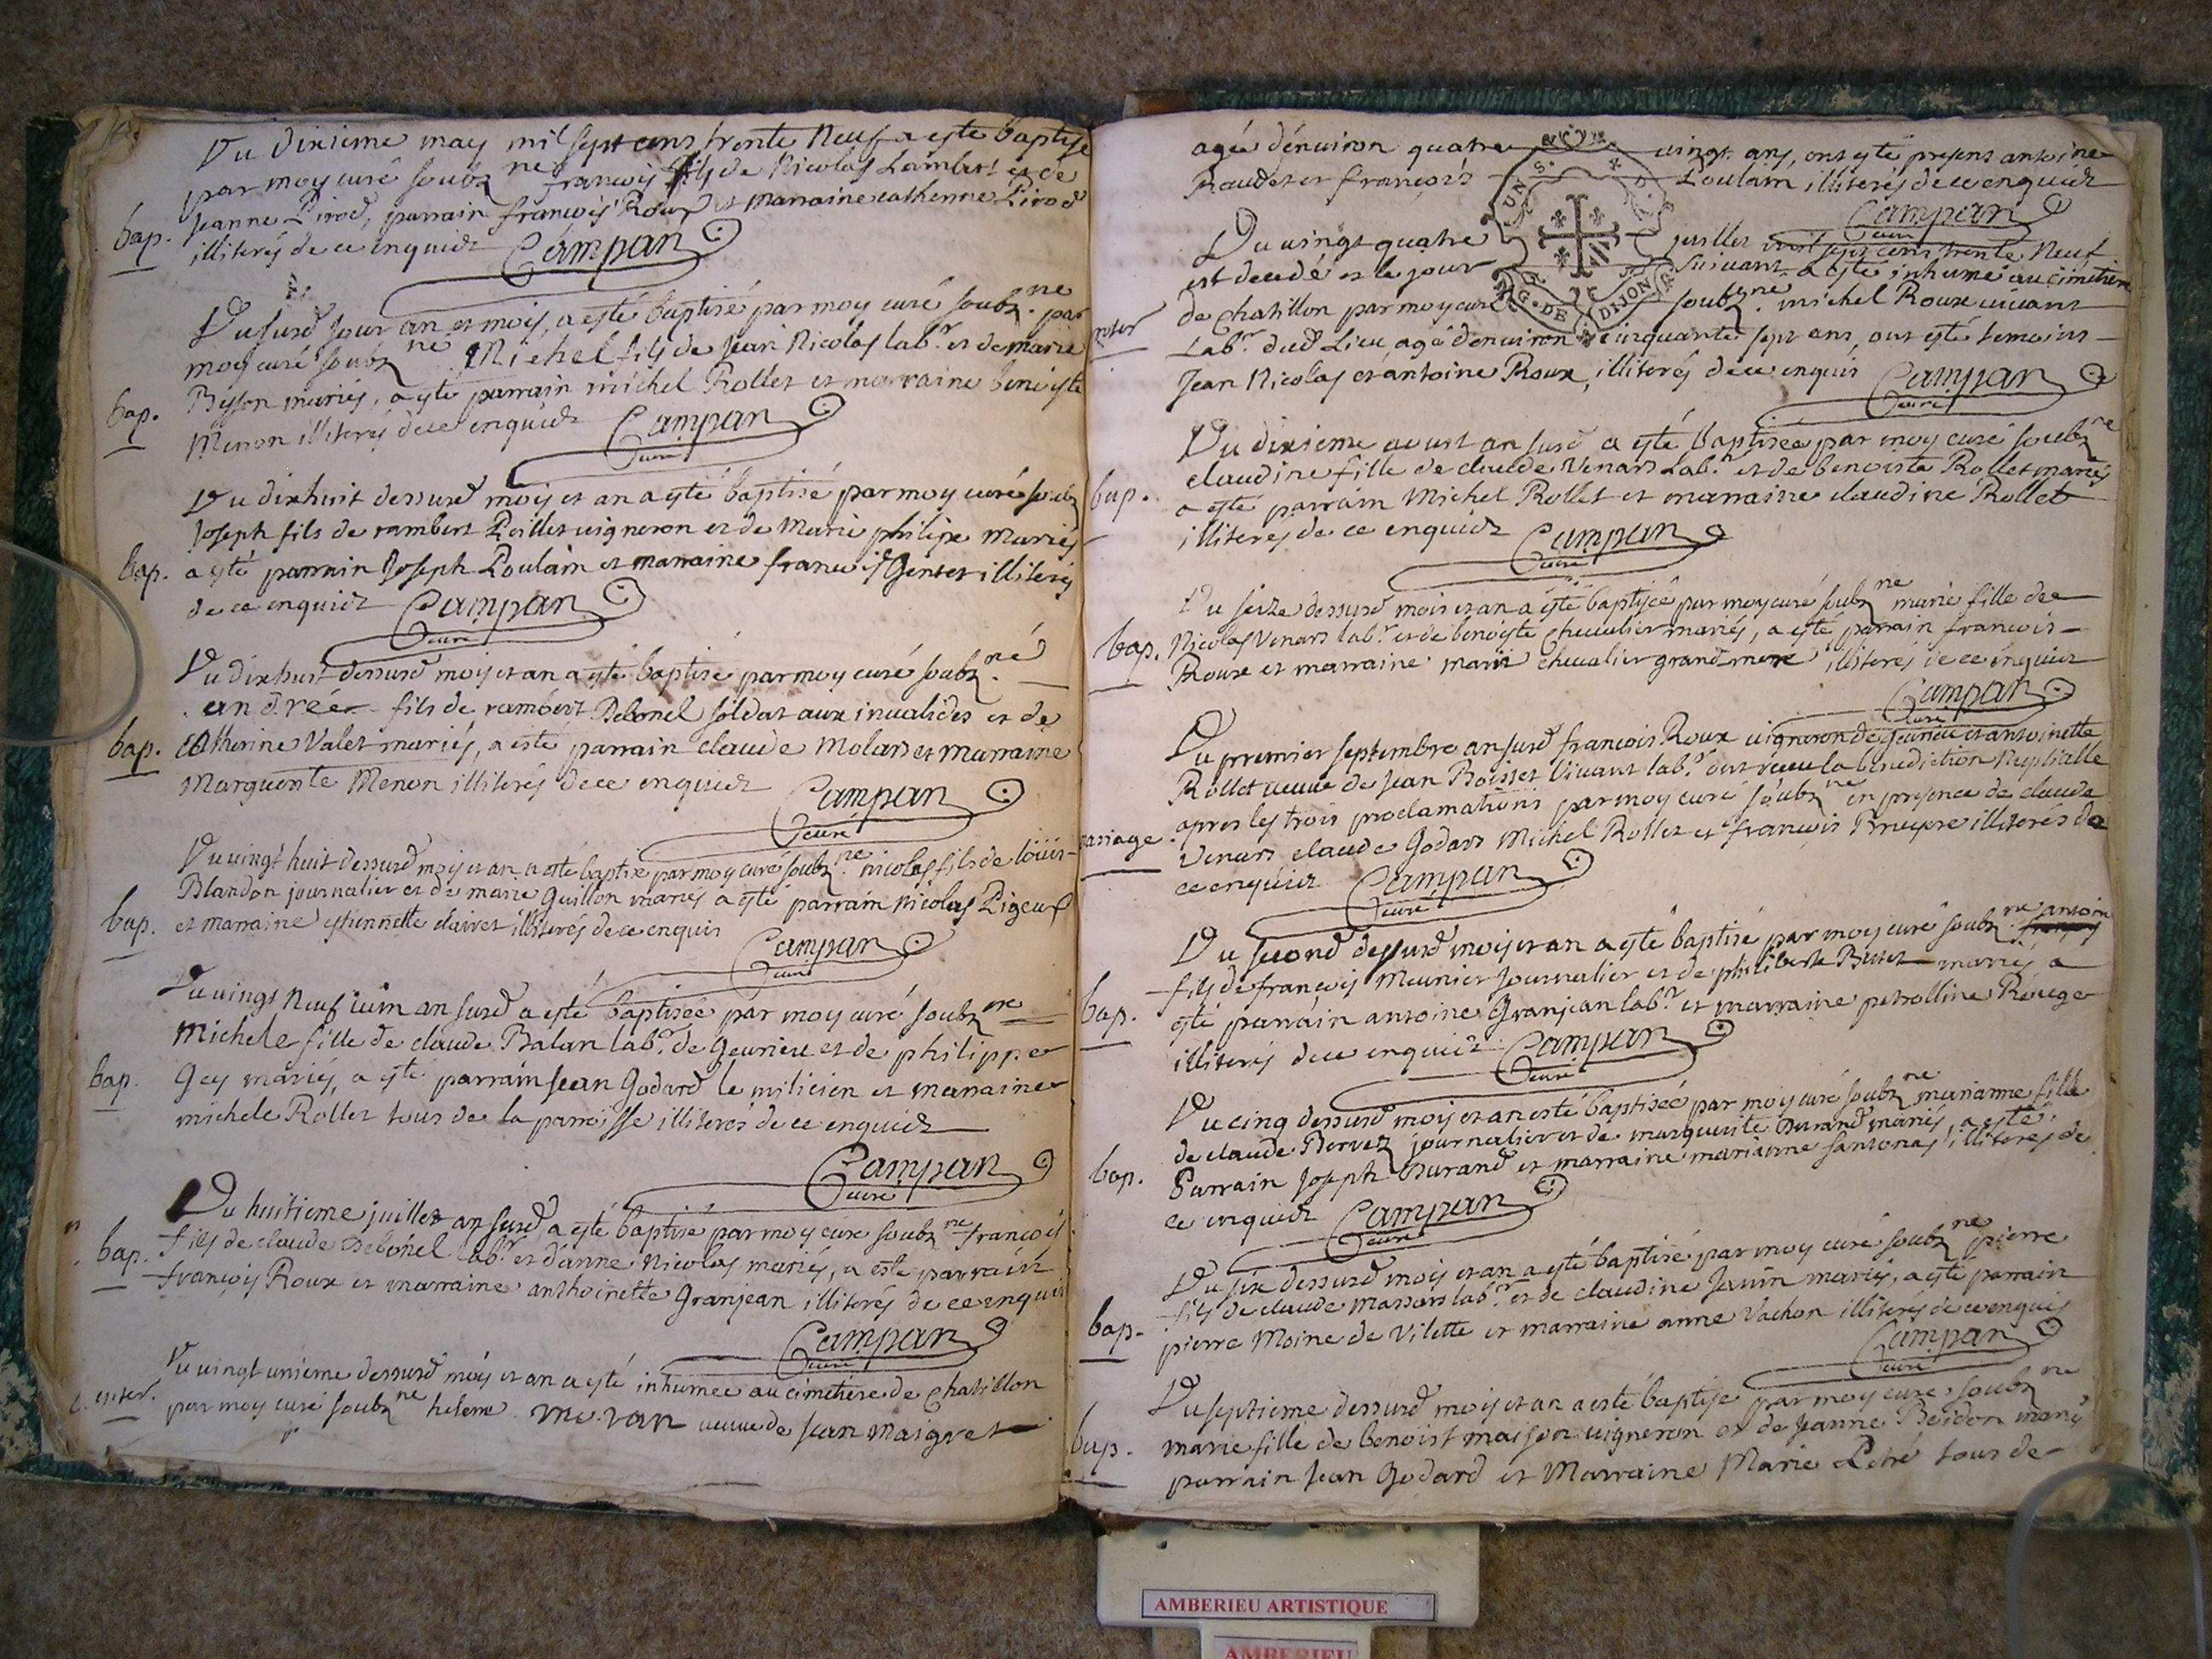 Du dixieme may mil sept cens trente Neuf a esté baptisé
par moy curé soubz ne françois fils de Nicolas Lambert et de
bap. Jeanne Pirod, parrain françois Roux et marraine catherine Pirod
illiterés de ce enquiez Campan curé
Du surd jour an et mois, a esté baptisé par moy curé soubz ne par
moy curé soubz ne Michel fils de Jean Nicolas labr. et de marie
bap. mariés, a esté parrain michel Rollet et marraine benoiste
Menon illiterés de ce enquiez Campan curé
Du dixhuit dessurd mois et an a esté baptisé par moy curé soubz
Joseph fils de rambert Poillet uigneron et de Marie philipe Mariés
bap. a esté parrain Joseph Poulain et marraine Genet illiterés
de ce enquiez Campan curé
Du dixhuit dessurd mois et an a esté baptisé par moy curé soubz. né
andréé fils de rambert Debonel soldat aux inualides et de
bap. Catherine Valet mariés, a esté parrain claude Molard et marraine
Marguerite Menon illiterés de ce enquiez Campan curé
Du uingt huit dessurd mois et an a esté baptisé par moy curé soubz. ne nicolas fils de loüis
Blandon journalier et de marie Guillon mariés a esté parrain Nicolas Pigeux
bap. et marraine estiennette clairet illiterés de ce enquis Campan curé
Du uingt Neuf iuin an surd a esté baptisée par moy curé soubz ne
Michele fille de claude Balan labr. de Geurieu et de philippe
bap. Gey mariés, a esté parrain Jean Godard le milicien et marraine
michele Rollet tous de la parroisse illiterés de ce enquiez
Campan curé
Du huitieme juillet an surd a esté baptisé par moy curé soubz ne françois
bap. fils de claude Debonel labr. et d'anne Nicolas mariés, a esté parrain
françois Roux et marraine anthoinette Granjean illiterés de ce enquis
Campan curé
Du uingt unieme dessurd mois et an a esté inhumée au cimetiere de Chatillon
enter. par moy curé soubz ne helene ueuue de Jean Maigret
agée d'enuiron quatre uingt ans, ont esté presens antoine
Raudet et françois Poulain illiterés de ce enquiez
Campan curé
UNS. G. DE DIJON
Du uingt quatre juillet mil sept cens trente Neuf
est decedé et le jour suiuant a esté inhumé au cimetiere
enter de Chatillon par moy curé soubz ne michel Roux uiuant
Labr. dud Lieu, agé d'enuiron cinquante sept ans, ont esté temoins
Jean Nicolas et antoine Roux, illiterés de ce enquis Campan curé
Du dixieme aoust an surd a esté baptisée par moy curé soubz ne
claudine fille de claude Venard Labr. et de benoiste Rollet mariés
bap. a esté parrain Michel Rollet et marraine claudine Rollet
illiterés de ce enquiez Campan curé
Du seize dessurd mois et an a esté baptisée par moy curé soubz ne marie fille de
bap. Nicolas Venard labr. et de benoiste cheualier mariés, a esté parrain françois
Roux et marraine marie cheualier grand mere illiterés de ce enquiez
Campan curé
Du premier septembre an surd francois Roux uigneron de Jeurieu et antoinette
Rollet ueuue de Jean Boisset Viuant labr. ont receu la benediction Nuptialle
apres les trois proclamations par moy curé soubz ne en presence de claude
mariage Venard claude Godard Michel Rollet et françois Bruyere illiterés de
ce enquiez Campan curé
Du second dessurd mois et an a esté baptisé par moy curé soubz ne antoin
fils de françois Meunier Journalier et de philiberte mariés a
bap. esté parrain antoine Granjean labr. et marraine petrolline Rouge
illiterés de ce enquiez Campan curé
Du cinq dessurd mois et an esté baptisée par moy curé soubz ne marianne fille
de claude Bervez journalier et de marguerite Durand mariés, a esté
bap. Parrain Joseph Durand et marraine marianne Santonas illiterés de
ce enquiez Campan curé
Du six dessurd mois et an a esté baptisé par moy curé soubz ne pierre
fils de claude Massard labr. et de claudine Janin mariés, a esté parrain
bap. pierre Moine de Vilette et marraine anne Vachon illiterés de ce enquis
Campan curé
Du septieme dessurd mois et an a esté baptisé par moy curé soubz ne
bap. marie fille de benoist maison uigneron et de Jeanne Beidon mariés
parrain Jean Godard et Marraine Marie tous de
AMBERIEU ARTISTIQUE
AMBERIEU